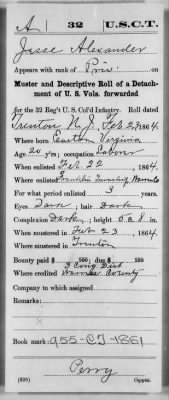 A | 32 | U.S.C.T.
Jesse Alexander
Appears with rank of Priv. on
Muster and Descriptive Roll of a Detach-
ment of U. S. Vols. forwarded
for the 32 Reg't U. S. Col'd Infantry. Roll dated
Trenton N. J. Feb 23, 1864.
Where born Eastern Virginia
Age 20 y'rs; occupation Laborer
When enlisted Feb. 22, 1864.
Where enlisted Franklin Township
For what period enlisted 3 years.
Eyes Dark; hair Dark
Complexion Dark; height 5 ft 8 in.
When mustered in Feb 23, 1864.
Where mustered in Trenton
Bounty paid $ 100; due $ 100
Where credited 3 Cong Dist
Warren County
Company to which assigned
Remarks:
Book mark: 955-CT-1861
Perry
(339) Copyist.